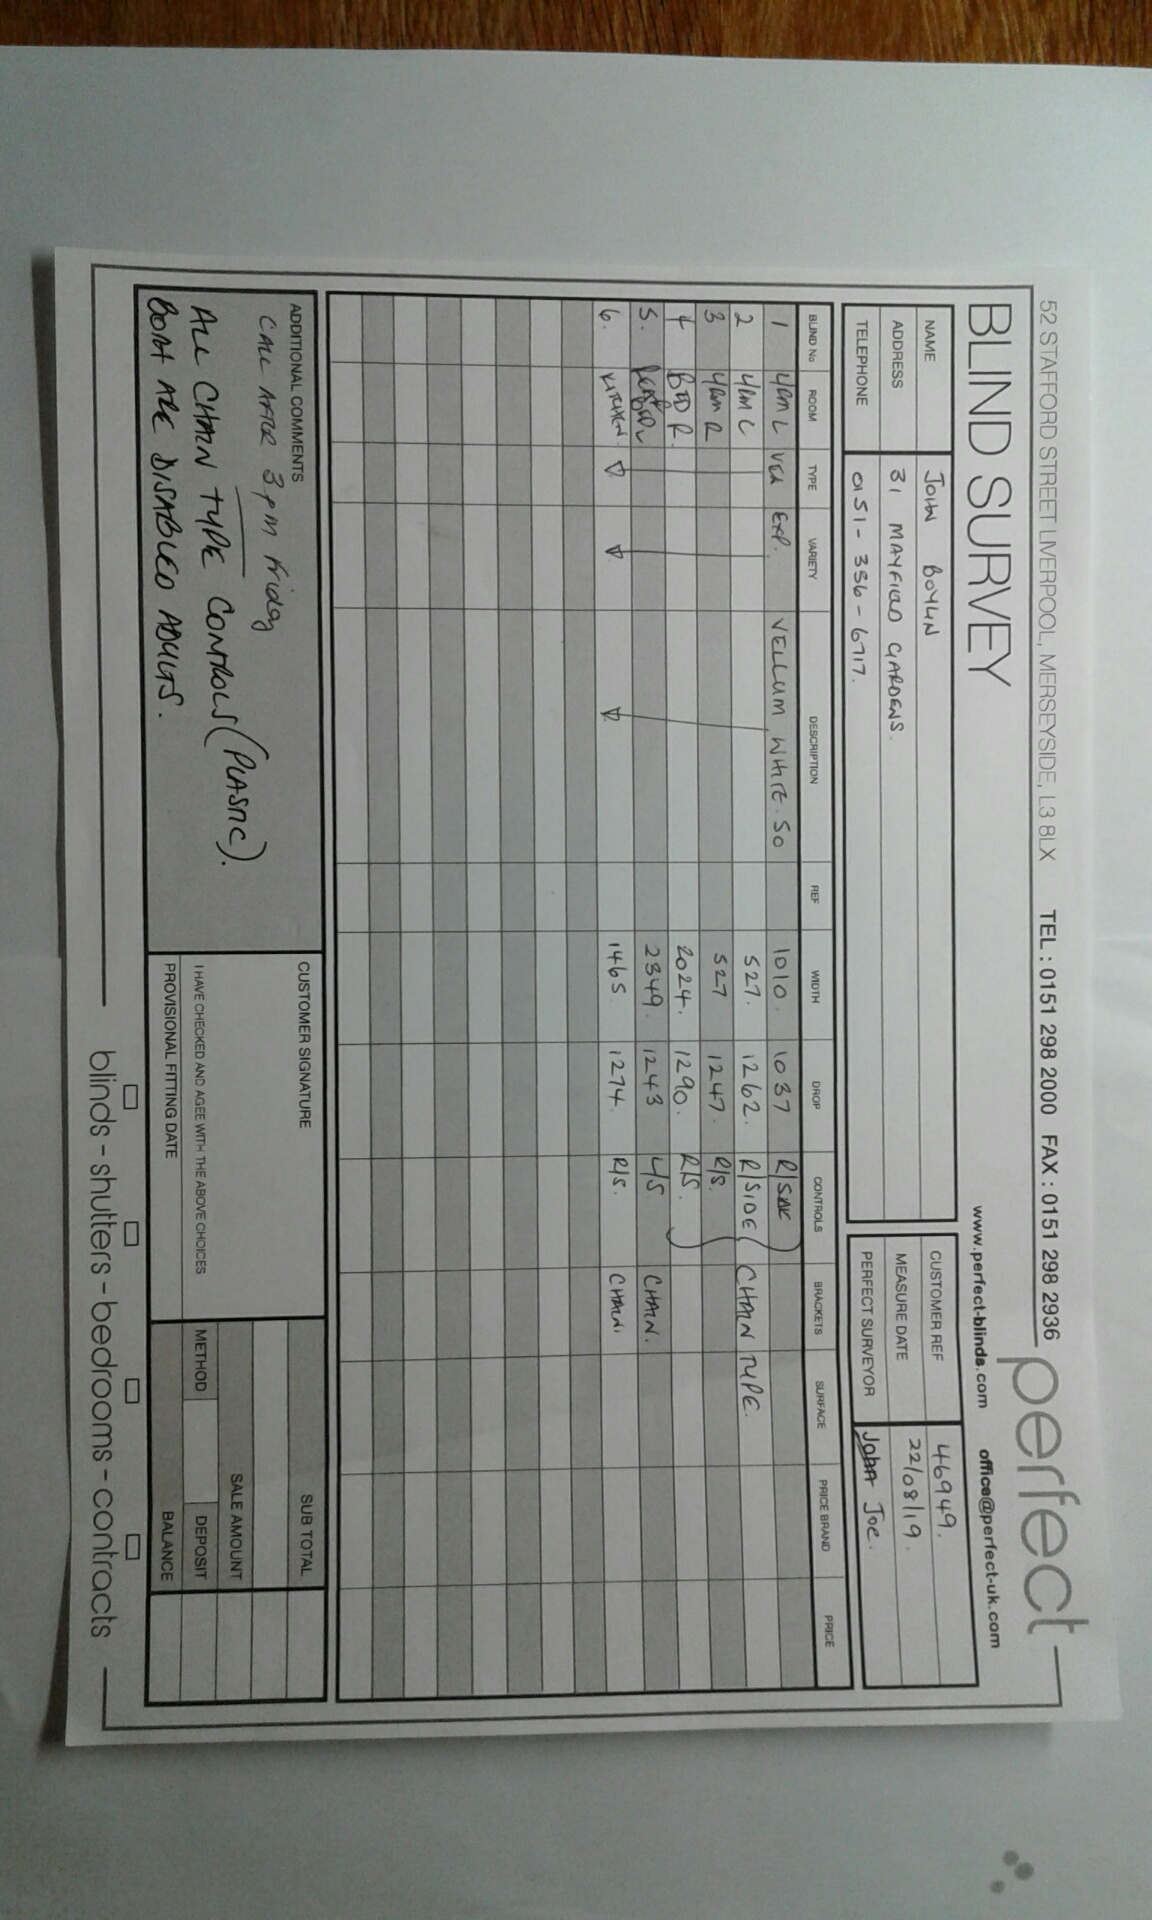 52 STAFFORD STREET LIVERPOOL, MERSEYSIDE, L3 8LX TEL : 0151 298 2000 FAX : 0151 298 2936
perfect
BLIND SURVEY
www.perfect-blinds.com office@perfect-uk.com
NAME JOHN BOYLIN
ADDRESS 31 MAYFIELD GARDENS.
TELEPHONE 0151-356-6717.
CUSTOMER REF 46949.
MEASURE DATE 22/08/19.
PERFECT SURVEYOR John Joe.
BLIND No ROOM TYPE VARIETY DESCRIPTION REF WIDTH DROP CONTROLS BRACKETS SURFACE PRICE BRAND PRICE
1 L VEN EXP. VELLUM WHITE. 50 1010. 1037 R/SIDE
2 527. 1262. R/SIDE CHAIN TYPE.
3 R 527 1247. R/S.
4 BED R. 2024. 1290. R/S.
5. 2349. 1243 L/S CHAIN.
6. KITCHEN. 1465 1274. R/S. CHAIN.
ADDITIONAL COMMENTS
CALL AFTER 3pm Friday
ALL CHAIN TYPE CONTROLS (PLASTIC).
BOTH ARE DISABLED ADULTS.
CUSTOMER SIGNATURE
I HAVE CHECKED AND AGEE WITH THE ABOVE CHOICES
PROVISIONAL FITTING DATE
SUB TOTAL
SALE AMOUNT
METHOD DEPOSIT
BALANCE
blinds - shutters - bedrooms - contracts